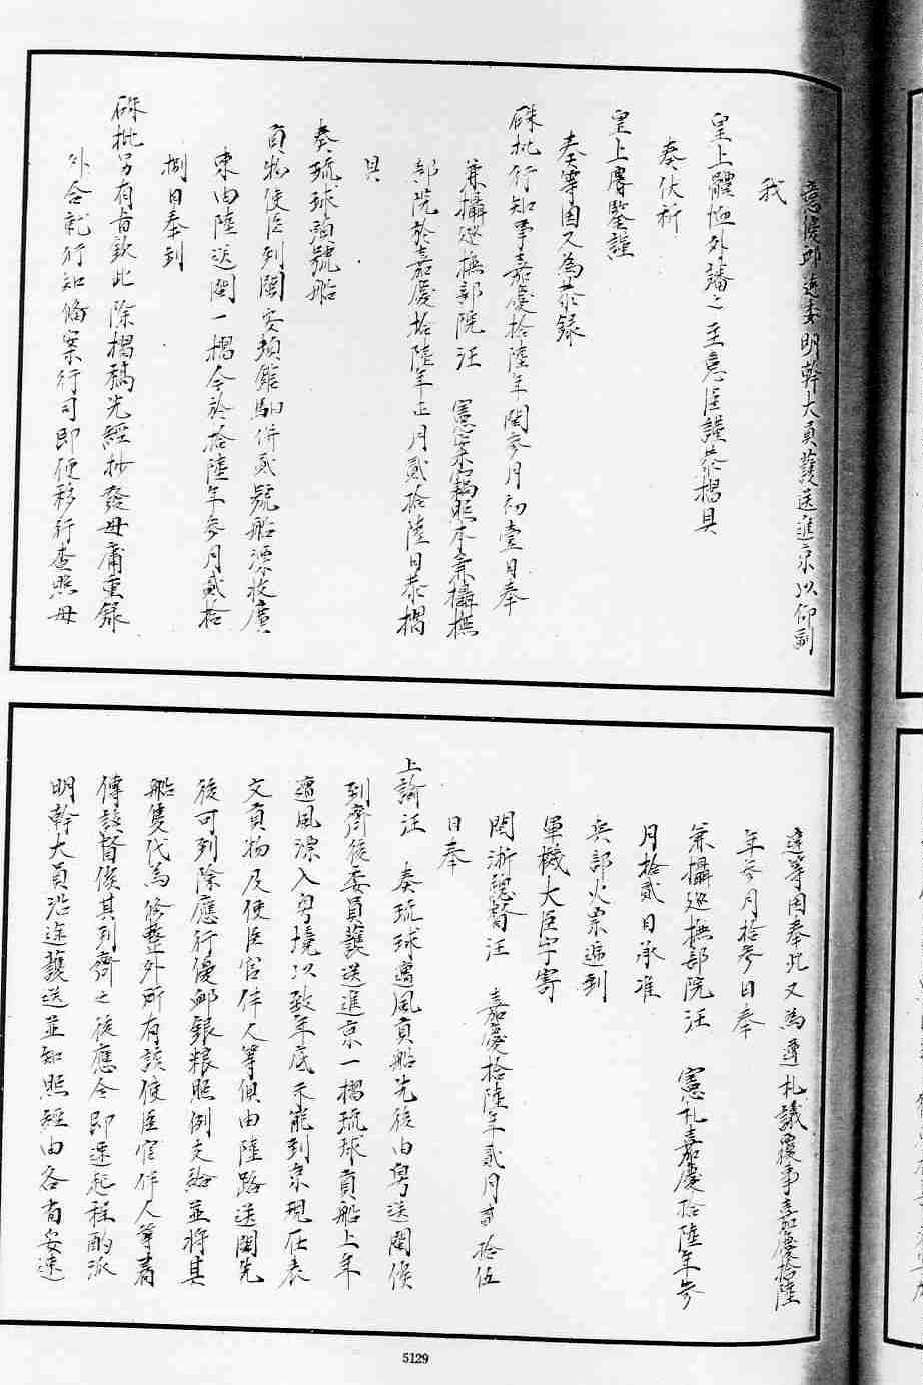 意優卹遴委明幹大員護送進京以仰副
我
皇上體恤外藩之至意臣謹恭摺具
奏伏祈
皇上睿鑒謹
奏等因又為恭錄
硃批行知事嘉慶拾陸年閏參月初壹日奉
兼攝巡撫部院汪　憲案窩照本兼攝撫
部院於嘉慶拾陸年正月貳拾陸日恭摺
具
奏琉球頭號船
貢物使臣到閩安頓館驛併貳號船漂收廣
東由陸送閩一摺今於拾陸年參月貳拾
捌日奉到
硃批另有旨欽此除摺稿先經抄發毋庸重錄
外合就行知備案行司即便移行查照毋
違等因奉此又為遵札議覆事嘉慶拾陸
年參月拾參日奉
兼攝巡撫部院汪　憲札嘉慶拾陸年參
月拾貳日承准
兵部火票遞到
軍機大臣字寄
閩浙總督汪　嘉慶拾陸年貳月貳拾伍
日奉
上諭汪　奏琉球遭風貢船先後由粵送閩俟
到齊後委員護送進京一摺琉球貢船上年
遭風漂入粵境以致年底未能到京現在表
文貢物及使臣官伴人等俱由陸路送閩先
後可到除應行優卹銀糧照例支給並將其
船隻代為修整外所有該使臣官伴人等着
傳該督俟其到齊之後應令即速起程酌派
明幹大員沿途護送並知照經由各省妥速
5129